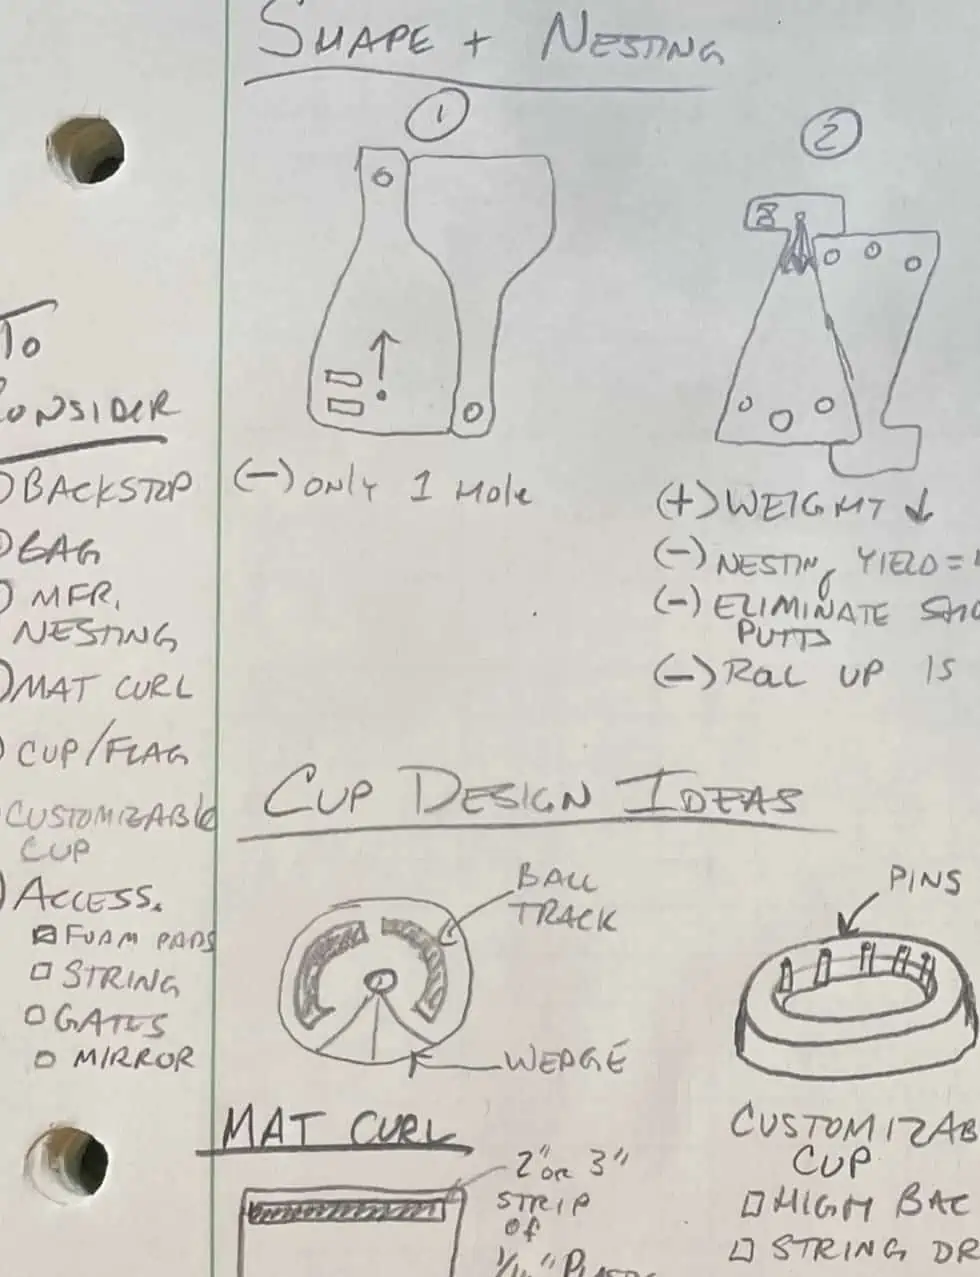 SHAPE + NESTING
1
2
(-) ONLY 1 HOLE
(+) WEIGHT ↓
(-) NESTING YIELD =
(-) ELIMINATE
PUTTS
(-) ROLL UP IS
TO
CONSIDER
BACKSTOP
BAG
MFR.
NESTING
MAT CURL
CUP/FLAG
CUSTOMIZABLE
CUP
ACCESS.
FOAM PADS
STRING
GATES
MIRROR
CUP DESIGN IDEAS
BALL
TRACK
WEDGE
PINS
CUSTOMIZAB
CUP
HIGH BAC
STRING DR
MAT CURL
2" OR 3"
STRIP
OF
1/16" PLASTIC